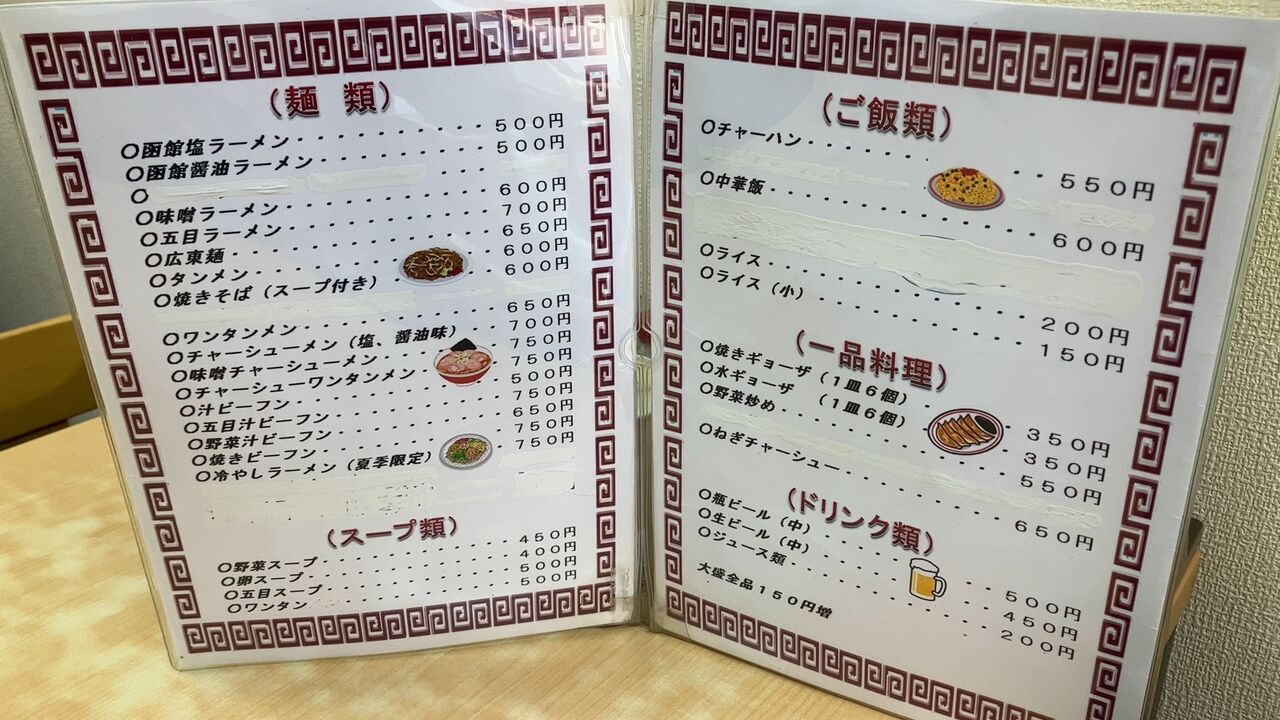 (麺 類)
〇函館塩ラーメン・・・・・・・・・・500円
〇函館醤油ラーメン・・・・・・・・・500円
〇
〇味噌ラーメン・・・・・・・・・・・600円
〇五目ラーメン・・・・・・・・・・・700円
〇広東麺・・・・・・・・・・・・・・650円
〇タンメン・・・・・・・・・・・・・600円
〇焼きそば(スープ付き)・・・・・・600円
〇ワンタンメン・・・・・・・・・・・650円
〇チャーシューメン(塩、醤油味)　700円
〇味噌チャーシューメン・・・・・・・750円
〇チャーシューワンタンメン・・・・・750円
〇汁ビーフン・・・・・・・・・・・・500円
〇五目汁ビーフン・・・・・・・・・・750円
〇野菜汁ビーフン・・・・・・・・・・650円
〇焼きビーフン・・・・・・・・・・・750円
〇冷やしラーメン(夏季限定)・・・・750円
(スープ類)
〇野菜スープ・・・・・・・・・・・・450円
〇卵スープ・・・・・・・・・・・・・400円
〇五目スープ・・・・・・・・・・・・500円
〇ワンタン・・・・・・・・・・・・・500円
(ご飯類)
〇チャーハン・・・・・・・・・・550円
〇中華飯・・・・・・・・・・・・600円
〇ライス・・・・・・・・・・・・200円
〇ライス(小)・・・・・・・・・150円
(一品料理)
〇焼きギョーザ(1皿6個)・・・350円
〇水ギョーザ　(1皿6個)・・・350円
〇野菜炒め・・・・・・・・・・・550円
〇ねぎチャーシュー・・・・・・・650円
(ドリンク類)
〇瓶ビール(中)・・・・・・・・500円
〇生ビール(中)・・・・・・・・450円
〇ジュース類・・・・・・・・・・200円
大盛全品150円増